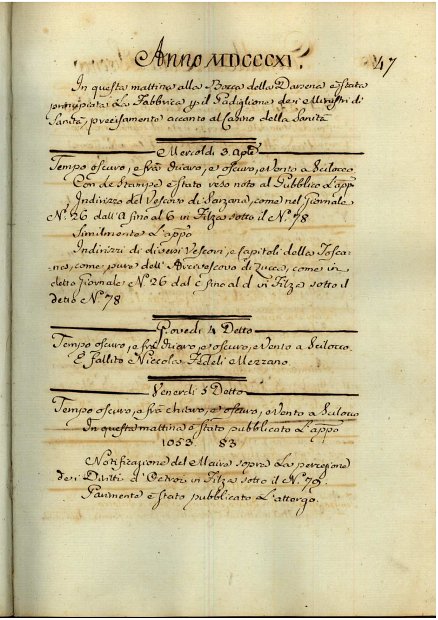 Anno MDCCCXI.
47
In questa mattina alla Bocca della Darsena è stata
principiata La Fabbrica p il Padiglione de i Ministri di
Sanità, precisamente accanto al Casino della Sanità
Mercoldi 3 Aple
Tempo oscuro, e frà chiaro, e oscuro, e Vento a Scilocco
Con de Stampe è stato reso noto al Pubblico L'app
Indirizzo del Vescovo di Sarzana, come nel Giornale
N.º 26 dall' A sino al 6 in Filza sotto il N.º 78
Similmente L'appo
Indirizzi di diversi Vescovi, e Capitoli della Tosca=
na, come pure dell' Arcivescovo di Lucca, come in
detto Giornale N.º 26 dal C sino al d in Filza sotto il
detto N.º 78
Giovedi 4 Detto
Tempo oscuro, e frà chiaro, e oscuro, e Vento a Scilocco.
È fallito Niccola Fedeli Mezzano.
Venerdi 5 Detto
Tempo oscuro, e frà chiaro, e oscuro, e Vento a Scilocco
In questa mattina è stato pubblicato L'appo
1053 83
Notificazione del Maire sopra La percezione
de i Diritti d' Octroi in Filza sotto il N.º 79.
Parimente è stato pubblicato L'attergo.